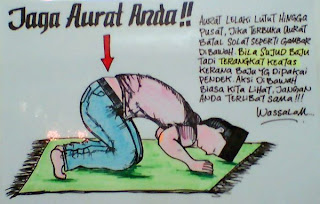 Jaga Aurat Anda!!
AURAT LELAKI LUTUT HINGGA
PUSAT, JIKA TERBUKA AURAT
BATAL SOLAT SEPERTI GAMBAR
DIBAWAH. BILA SUJUD BAJU
TADI TERANGKAT KEATAS
KERANA BAJU YG DIPAKAI
PENDEK. AKSI DIBAWAH
BIASA KITA LIHAT, JANGAN
ANDA TERLIBAT SAMA!!!
Wassalam..